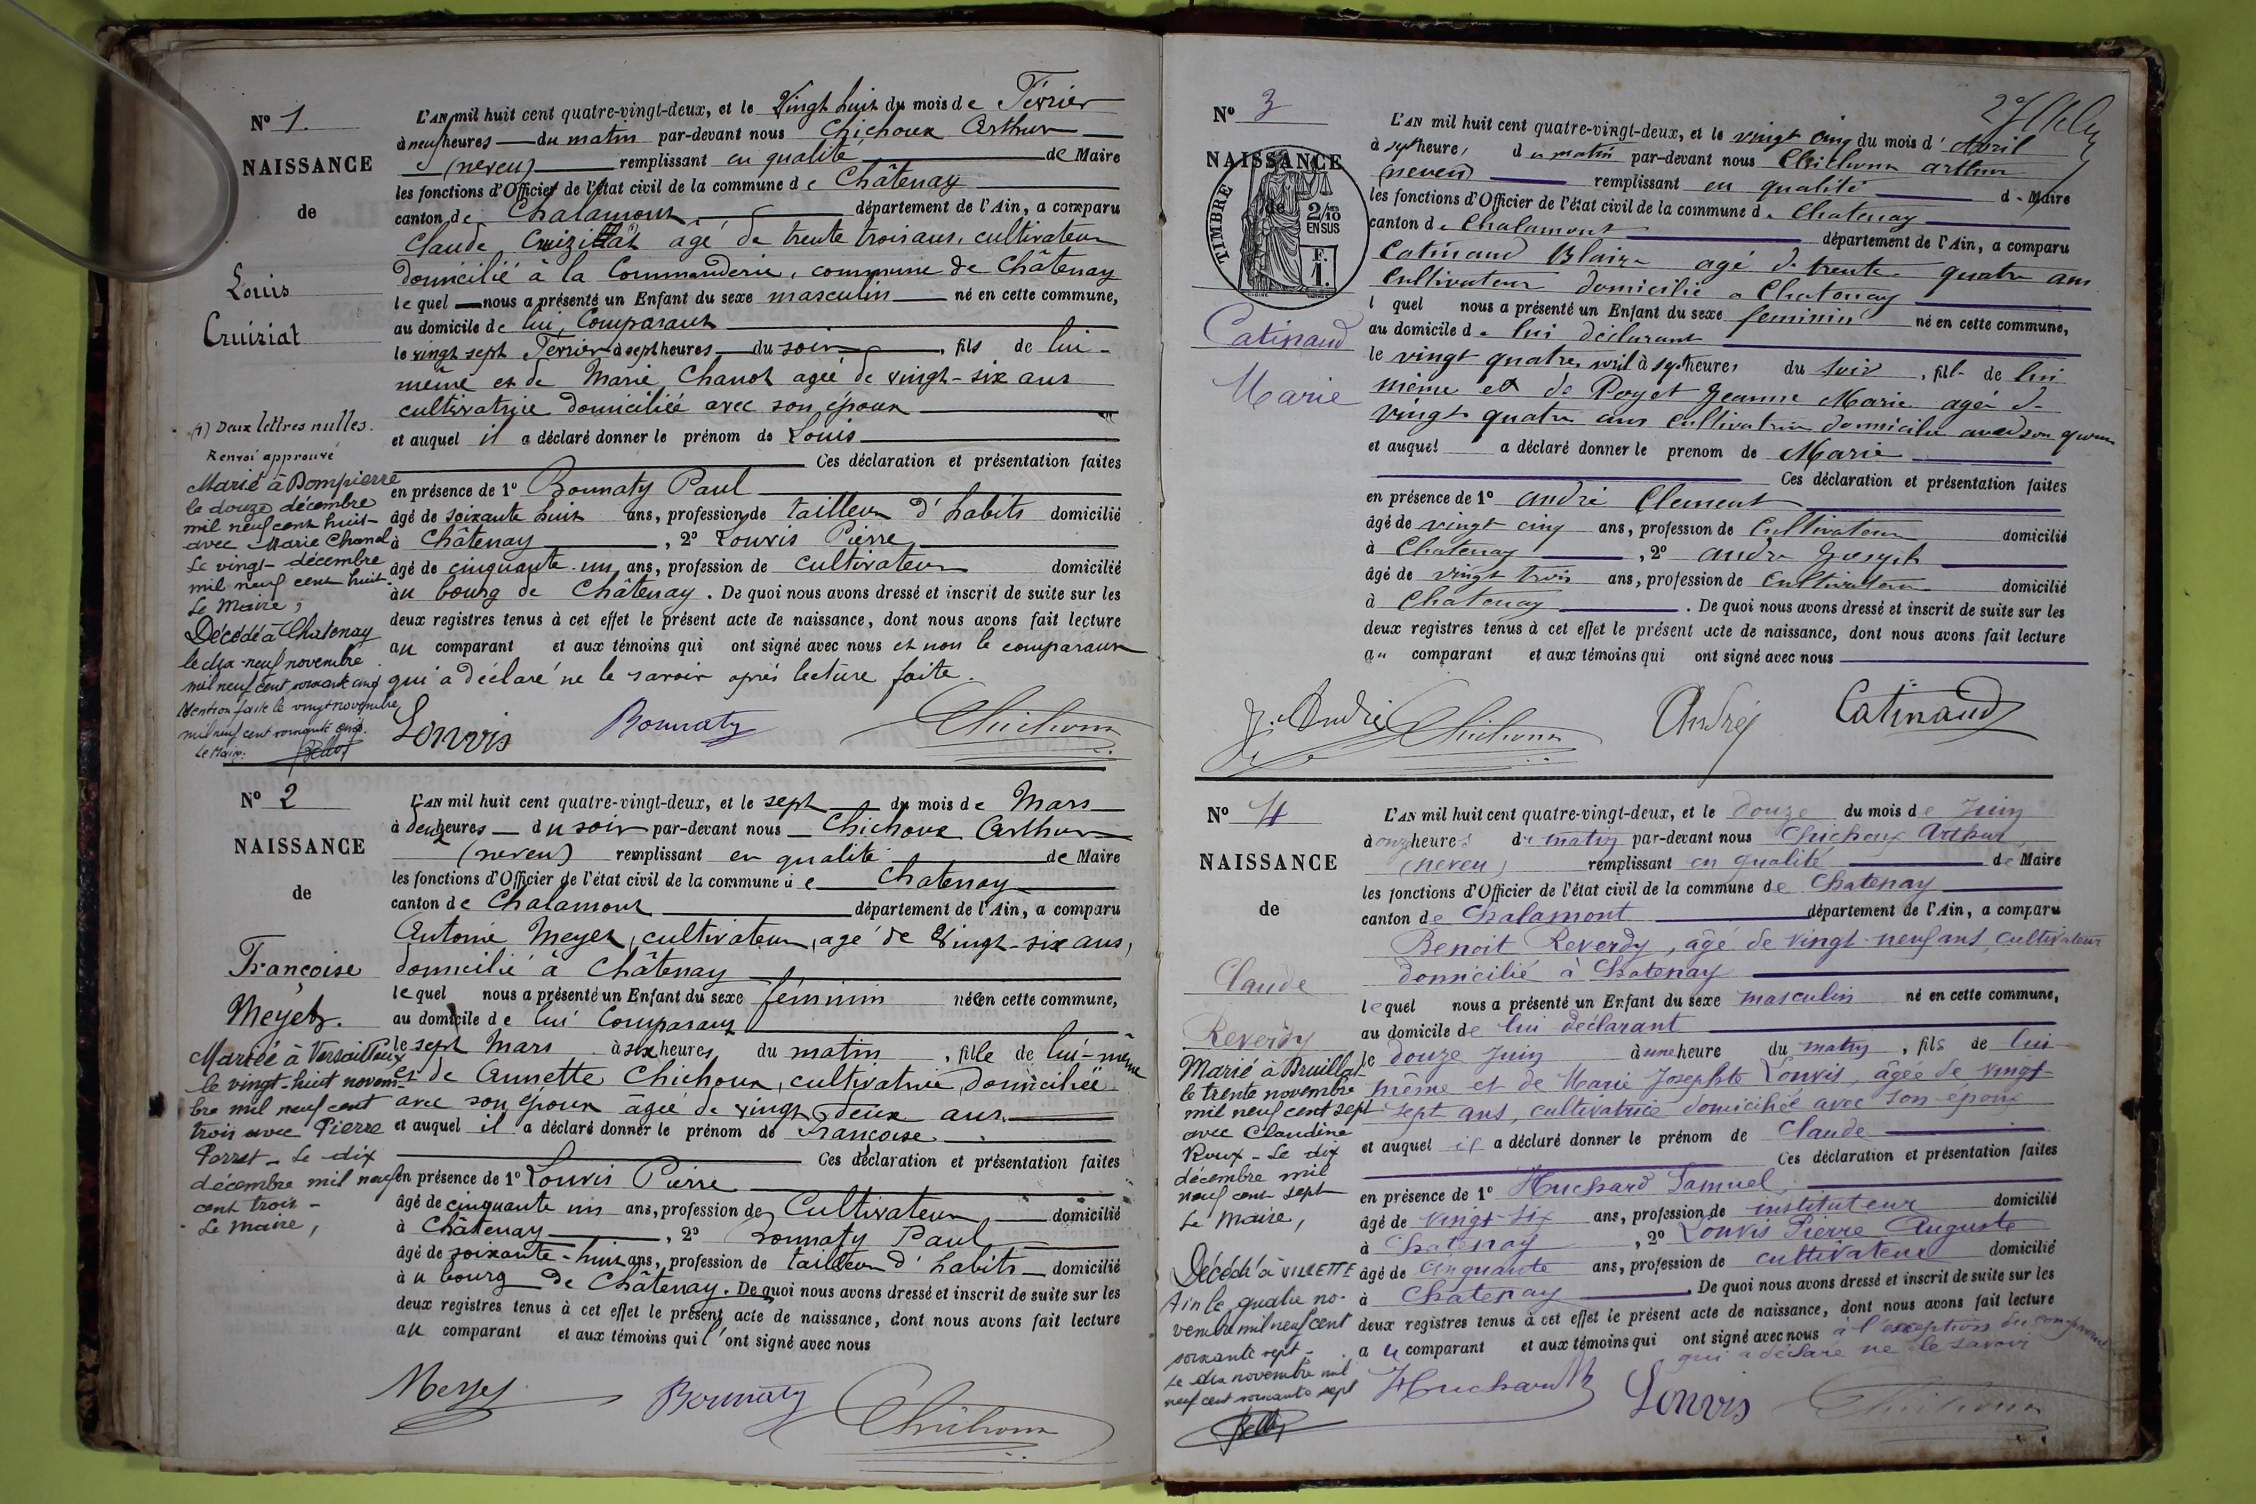 Nº 1.
NAISSANCE
de
Louis
Cruiziat
(1) Deux lettres nulles.
Renvoi approuvé
Marié à Dompierre
le douze décembre
mil neuf cent huit
avec Marie Chanel
Le vingt décembre
mil neuf cent huit.
Le Maire,
Décédé à Chatenay
le dix-neuf novembre
mil neuf cent soixante cinq
Mention faite le vingt novembre
mil neuf cent soixante cinq.
Le Maire:
L'AN mil huit cent quatre-vingt-deux, et le Vingt huit du mois de Février
à neuf heures du matin par-devant nous Chichoux Arthur
(neveu) remplissant en qualité de Maire
les fonctions d'Officier de l'état civil de la commune de Châtenay
canton de Chalamont département de l'Ain, a comparu
Claude Cruiziat âgé de trente trois ans, cultivateur
domicilié à la Commanderie, commune de Châtenay
le quel nous a présenté un Enfant du sexe masculin né en cette commune,
au domicile de lui, Comparant
le vingt sept Février à sept heures du soir, fils de lui-
même et de Marie Chanot agée de vingt-six ans
cultivatrice domiciliée avec son époux
et auquel il a déclaré donner le prénom de Louis
Ces déclaration et présentation faites
en présence de 1º Bonnaty Paul
âgé de soixante huit ans, profession de tailleur d'habits domicilié
à Châtenay, 2º Louvis Pierre
âgé de cinquante un ans, profession de cultivateur domicilié
au bourg de Châtenay. De quoi nous avons dressé et inscrit de suite sur les
deux registres tenus à cet effet le présent acte de naissance, dont nous avons fait lecture
au comparant et aux témoins qui ont signé avec nous et non le comparant
qui a déclaré ne le savoir après lecture faite.
Louvis Bonnaty Chichoux
Nº 2
NAISSANCE
de
Françoise
Meyet.
Mariée à Versailleux
le vingt-huit novem-
bre mil neuf cent
trois avec Pierre
Perret - Le dix
décembre mil neuf
cent trois -
Le Maire,
L'AN mil huit cent quatre-vingt-deux, et le sept du mois de Mars
à deux heures du soir par-devant nous Chichoux Arthur
(neveu) remplissant en qualité de Maire
les fonctions d'Officier de l'état civil de la commune de Chatenay
canton de Chalamont département de l'Ain, a comparu
Antoine Meyet, cultivateur, agé de vingt-six ans,
domicilié à Châtenay
le quel nous a présenté un Enfant du sexe féminin née en cette commune,
au domicile de lui Comparant
le sept Mars à six heures du matin, fille de lui-même
et de Annette Chichoux, cultivatrice, domiciliée
avec son époux âgée de vingt deux ans.
et auquel il a déclaré donner le prénom de Françoise
Ces déclaration et présentation faites
en présence de 1º Louvis Pierre
âgé de cinquante un ans, profession de Cultivateur domicilié
à Châtenay, 2º Bonnaty Paul
âgé de soixante-huit ans, profession de tailleur d'habits domicilié
au bourg de Châtenay. De quoi nous avons dressé et inscrit de suite sur les
deux registres tenus à cet effet le présent acte de naissance, dont nous avons fait lecture
au comparant et aux témoins qui l'ont signé avec nous
Meyet Bonnaty Chichoux
Nº 3
NAISSANCE
de
TIMBRE
2/10 EN SUS
F. 1.
Catinaud
Marie
L'AN mil huit cent quatre-vingt-deux, et le vingt cinq du mois d'Avril
à sept heures du matin par-devant nous Chichoux arthur
(neveu) remplissant en qualité de Maire
les fonctions d'Officier de l'état civil de la commune de Chatenay
canton de Chalamont département de l'Ain, a comparu
Catinaud Blaize agé de trente quatre ans
Cultivateur domicilié a Chatenay
l quel nous a présenté un Enfant du sexe feminin né en cette commune,
au domicile de lui déclarant
le vingt quatre avril à sept heures du soir, fil- de lui
même et de Poyet Jeanne Marie agée de
vingt quatre ans Cultivatrice domiciliée avec son époux
et auquel a déclaré donner le prenom de Marie
Ces déclaration et présentation faites
en présence de 1º andré Clement
âgé de vingt cinq ans, profession de Cultivateur domicilié
à Chatenay, 2º andré Joseph
âgé de vingt trois ans, profession de Cultivateur domicilié
à Chatenay. De quoi nous avons dressé et inscrit de suite sur les
deux registres tenus à cet effet le présent acte de naissance, dont nous avons fait lecture
au comparant et aux témoins qui ont signé avec nous
J. André Chichoux André Catinaud
Nº 4
NAISSANCE
de
Claude
Reverdy
Marié à Druillat
le trente novembre
mil neuf cent sept
avec Claudine
Roux - Le dix
décembre mil
neuf cent sept
Le Maire,
Décédé à VILLETTE
Ain le quatre no-
vembre mil neuf cent
soixante sept -
Le dix novembre mil
neuf cent soixante sept
L'AN mil huit cent quatre-vingt-deux, et le douze du mois de Juin
à onze heures du matin par-devant nous Chichoux Arthur
(neveu) remplissant en qualité de Maire
les fonctions d'Officier de l'état civil de la commune de Chatenay
canton de Chalamont département de l'Ain, a comparu
Benoit Reverdy, âgé de vingt-neuf ans, cultivateur
domicilié à Chatenay
lequel nous a présenté un Enfant du sexe masculin né en cette commune,
au domicile de lui déclarant
le douze Juin à une heure du matin, fils de lui
même et de Marie Josephte Louvis, âgée de vingt
sept ans, cultivatrice domiciliée avec son époux
et auquel il a déclaré donner le prénom de Claude
Ces déclaration et présentation faites
en présence de 1º Huchard Samuel
âgé de vingt-six ans, profession de instituteur domicilié
à Chatenay, 2º Louvis Pierre Auguste
âgé de cinquante ans, profession de cultivateur domicilié
à Chatenay. De quoi nous avons dressé et inscrit de suite sur les
deux registres tenus à cet effet le présent acte de naissance, dont nous avons fait lecture
au comparant et aux témoins qui ont signé avec nous à l'exception du comparant
qui a déclaré ne le savoir
Huchard Louvis Chichoux